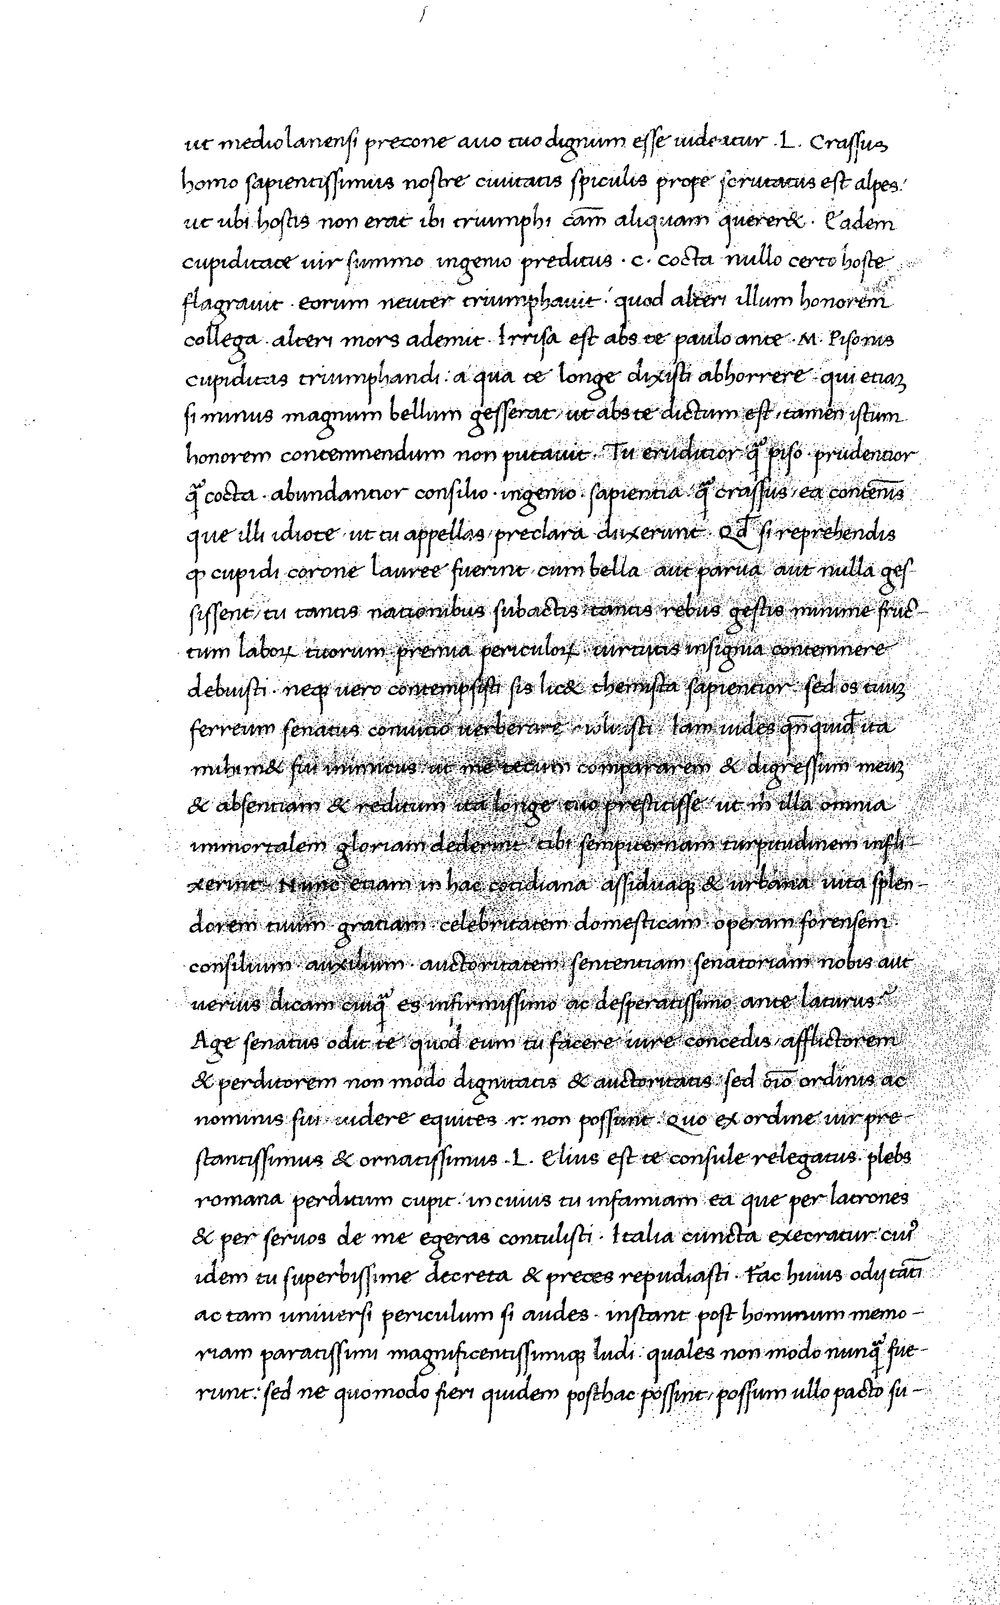 ut mediolanensi precone auo tuo dignum esse uideatur . L . Crassus
homo sapientissimus nostre ciuitatis spiculis prope scrutatus est alpes :
ut ubi hostis non erat ibi triumphi cām aliquam quereret . Eadem
cupiditate uir summo ingenio preditus . C . cocta nullo certo hoste
flagrauit . eorum neuter triumphauit : quod alteri illum honorem
collega . alteri mors ademit . Irrisa est abs te paulo ante . M . Pisonis
cupiditas triumphandi : a qua te longe dixisti abhorrere . qui etiaꝫ
si minus magnum bellum gesserat , ut abs te dictum est , tamen istum
honorem contemnendum non putauit . Tu eruditior qᷓ piso . prudentior
qᷓ cocta . abundantior consilio . ingenio . sapientia . qᷓ crassus , ea contēnis
que illi idiote , ut tu appellas , preclara duxerunt . Qd̄ si reprehendis
ꝙ cupidi corone lauree fuerint . cum bella aut parua aut nulla ges-
sissent , tu tantis nationibus subactis , tantis rebus gestis minime fruc-
tum laboꝝ tuorum . premia periculoꝝ . uirtutis insignia contemnere
debuisti . neqꝫ uero contempsisti sis lic& themista sapientior . sed os tuuꝫ
ferreum senatus conuicio uerberare noluisti . Iam uides qn̄quid̄ ita
mihim& fui inimicus ut me tecum compararem & digressum meuꝫ
& absentiam & reditum ita longe tuo prestitisse ut m̄ illa omnia
immortalem gloriam dederint . tibi sempiternam turpitudinem infli-
xerint . Nunc etiam in hac cotidiana assiduaqꝫ & urbana uita splen-
dorem tuum . gratiam . celebritatem domesticam . operam forensem .
consilium . auxilium . auctoritatem . sententiam senatoriam nobis aut
uerius dicam cuiqᷓ es infirmissimo ac desperatissimo ante laturus ?
Age senatus odit te . quod eum tu facere iure concedis , afflictorem
& perditorem non modo dignitatis & auctoritatis . sed oīo ordinis ac
nominis sui . uidere equites . r . non possunt . Quo ex ordine uir pre-
stantissimus & ornatissimus . L . Elius est te consule relegatus . plebs
romana perditum cupit . in cuius tu infamiam ea que per latrones
& per seruos de me egeras contulisti . Italia cuncta execratur . cuiꝰ
idem tu superbissime decreta & preces repudiasti . Fac huius odij tātī
ac tam uniuersi periculum si audes . instant post hominum memo-
riam paratissimi magnificentissimiqꝫ ludi . quales non modo nunqᷓ fue-
runt : sed ne quomodo fieri quidem posthac possint , possum ullo pacto su-